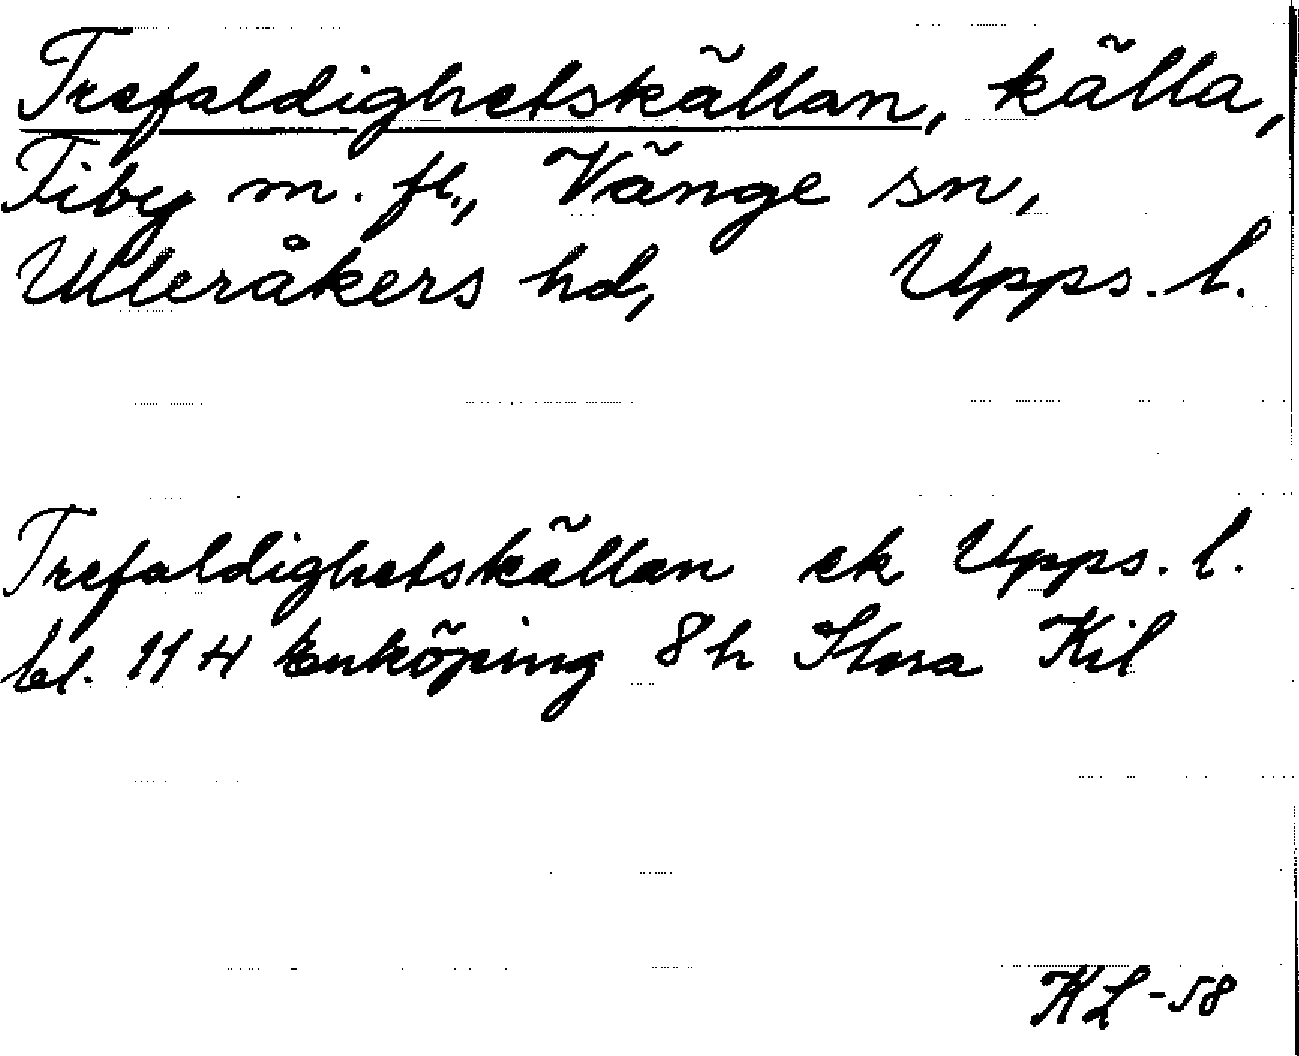 Trefaldighetskällan, källa,
Fiby m. fl., Vänge sn,
Ulleråkers hd, Upps. l.
Trefaldighetskällan ek Upps. l.
bl. 11 H Enköping 8 h Stora Kil
KL -58